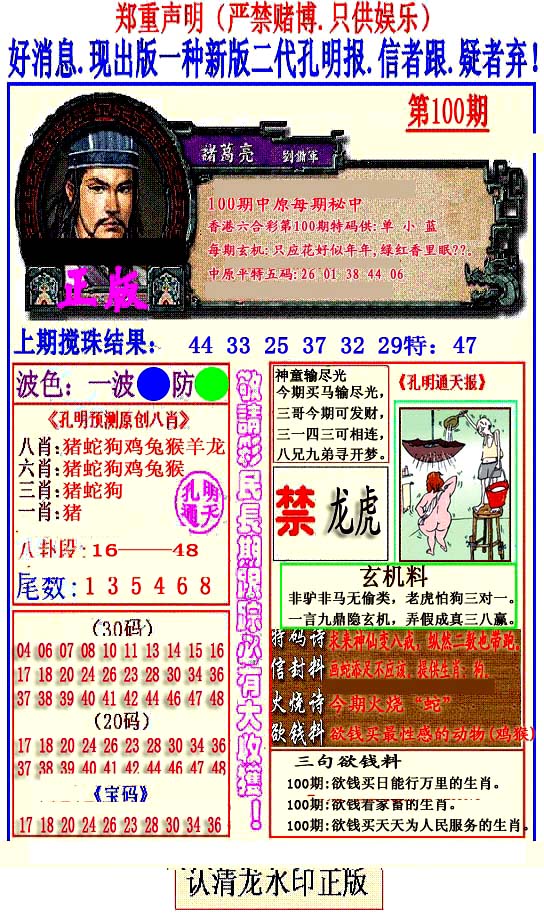 郑重声明（严禁赌博.只供娱乐）
好消息.现出版一种新版二代孔明报.信者跟.疑者弃!
第100期
諸葛亮 劉備軍
100期中原每期秘中
香港六合彩第100期特码供:单 小 蓝
每期玄机:只应花好似年年,绿红香里眠??。
中原平特五码:26 01 38 44 06
正版
上期搅珠结果： 44 33 25 37 32 29特：47
波色：一波 防
《孔明预测原创八肖》
八肖:猪蛇狗鸡兔猴羊龙
六肖:猪蛇狗鸡兔猴
三肖:猪蛇狗
一肖:猪
孔明通天
八卦段:16———48
尾数:1 3 5 4 6 8
（30码）
04 06 07 08 10 11 13 14 15 16
17 18 20 24 26 23 28 30 34 36
37 38 39 40 41 42 44 46 47 48
（20码）
17 18 20 24 26 23 28 30 34 36
37 38 39 40 41 42 44 46 47 48
《宝码》
17 18 20 24 26 23 28 30 34 36
敬請彩民長期跟踪必有大收獲！
神童输尽光
今期买马输尽光，
三哥今期可发财，
三一四三可相连，
八兄九弟寻开梦。
《孔明通天报》
禁 龙虎
玄机料
非驴非马无偷类，老虎怕狗三对一。
一言九鼎隐玄机，弄假成真三八赢。
特码诗 求来神仙变八戒，纵然二数也带跑。
信封料 画蛇添足不应该，提供生肖：狗。
火烧诗 今期火烧“蛇”
欲钱料 欲钱买最性感的动物(鸡猴)
三句欲钱料
100期:欲钱买日能行万里的生肖。
100期:欲钱看家畜的生肖。
100期:欲钱买天天为人民服务的生肖。
认清龙水印正版